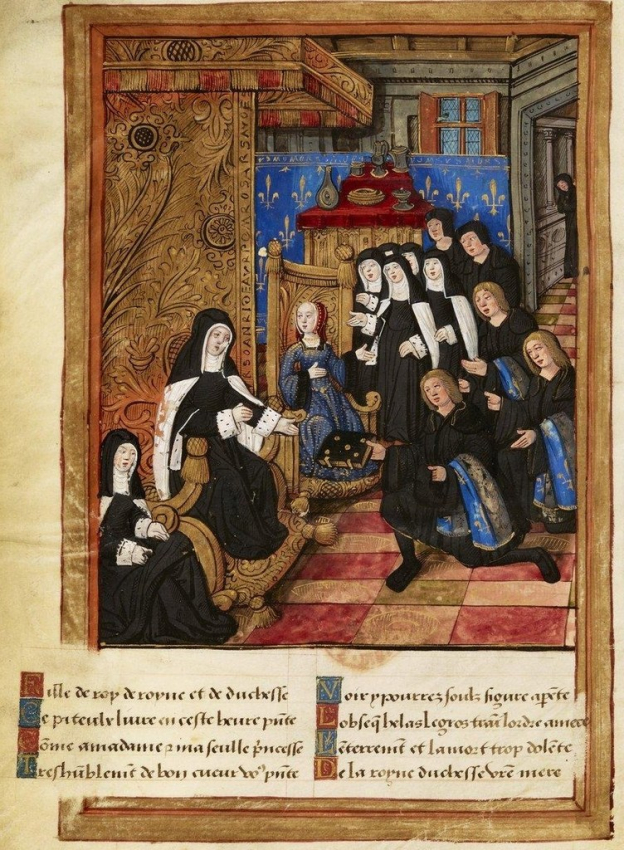 Fille de roy de royne et de duchesse
Ce piteulx livre en ceste heure pñte
Cõme a madame ⁊ ma seulle pñcesse
Treshũblemẽt de bon cueur voꝰ pñte
Voir y pourrez soulz figure apẽte
Lobseq helas le gros train lordre amere
Lẽterremẽt et la mort trop dolẽte
De la royne duchesse vrẽ mere